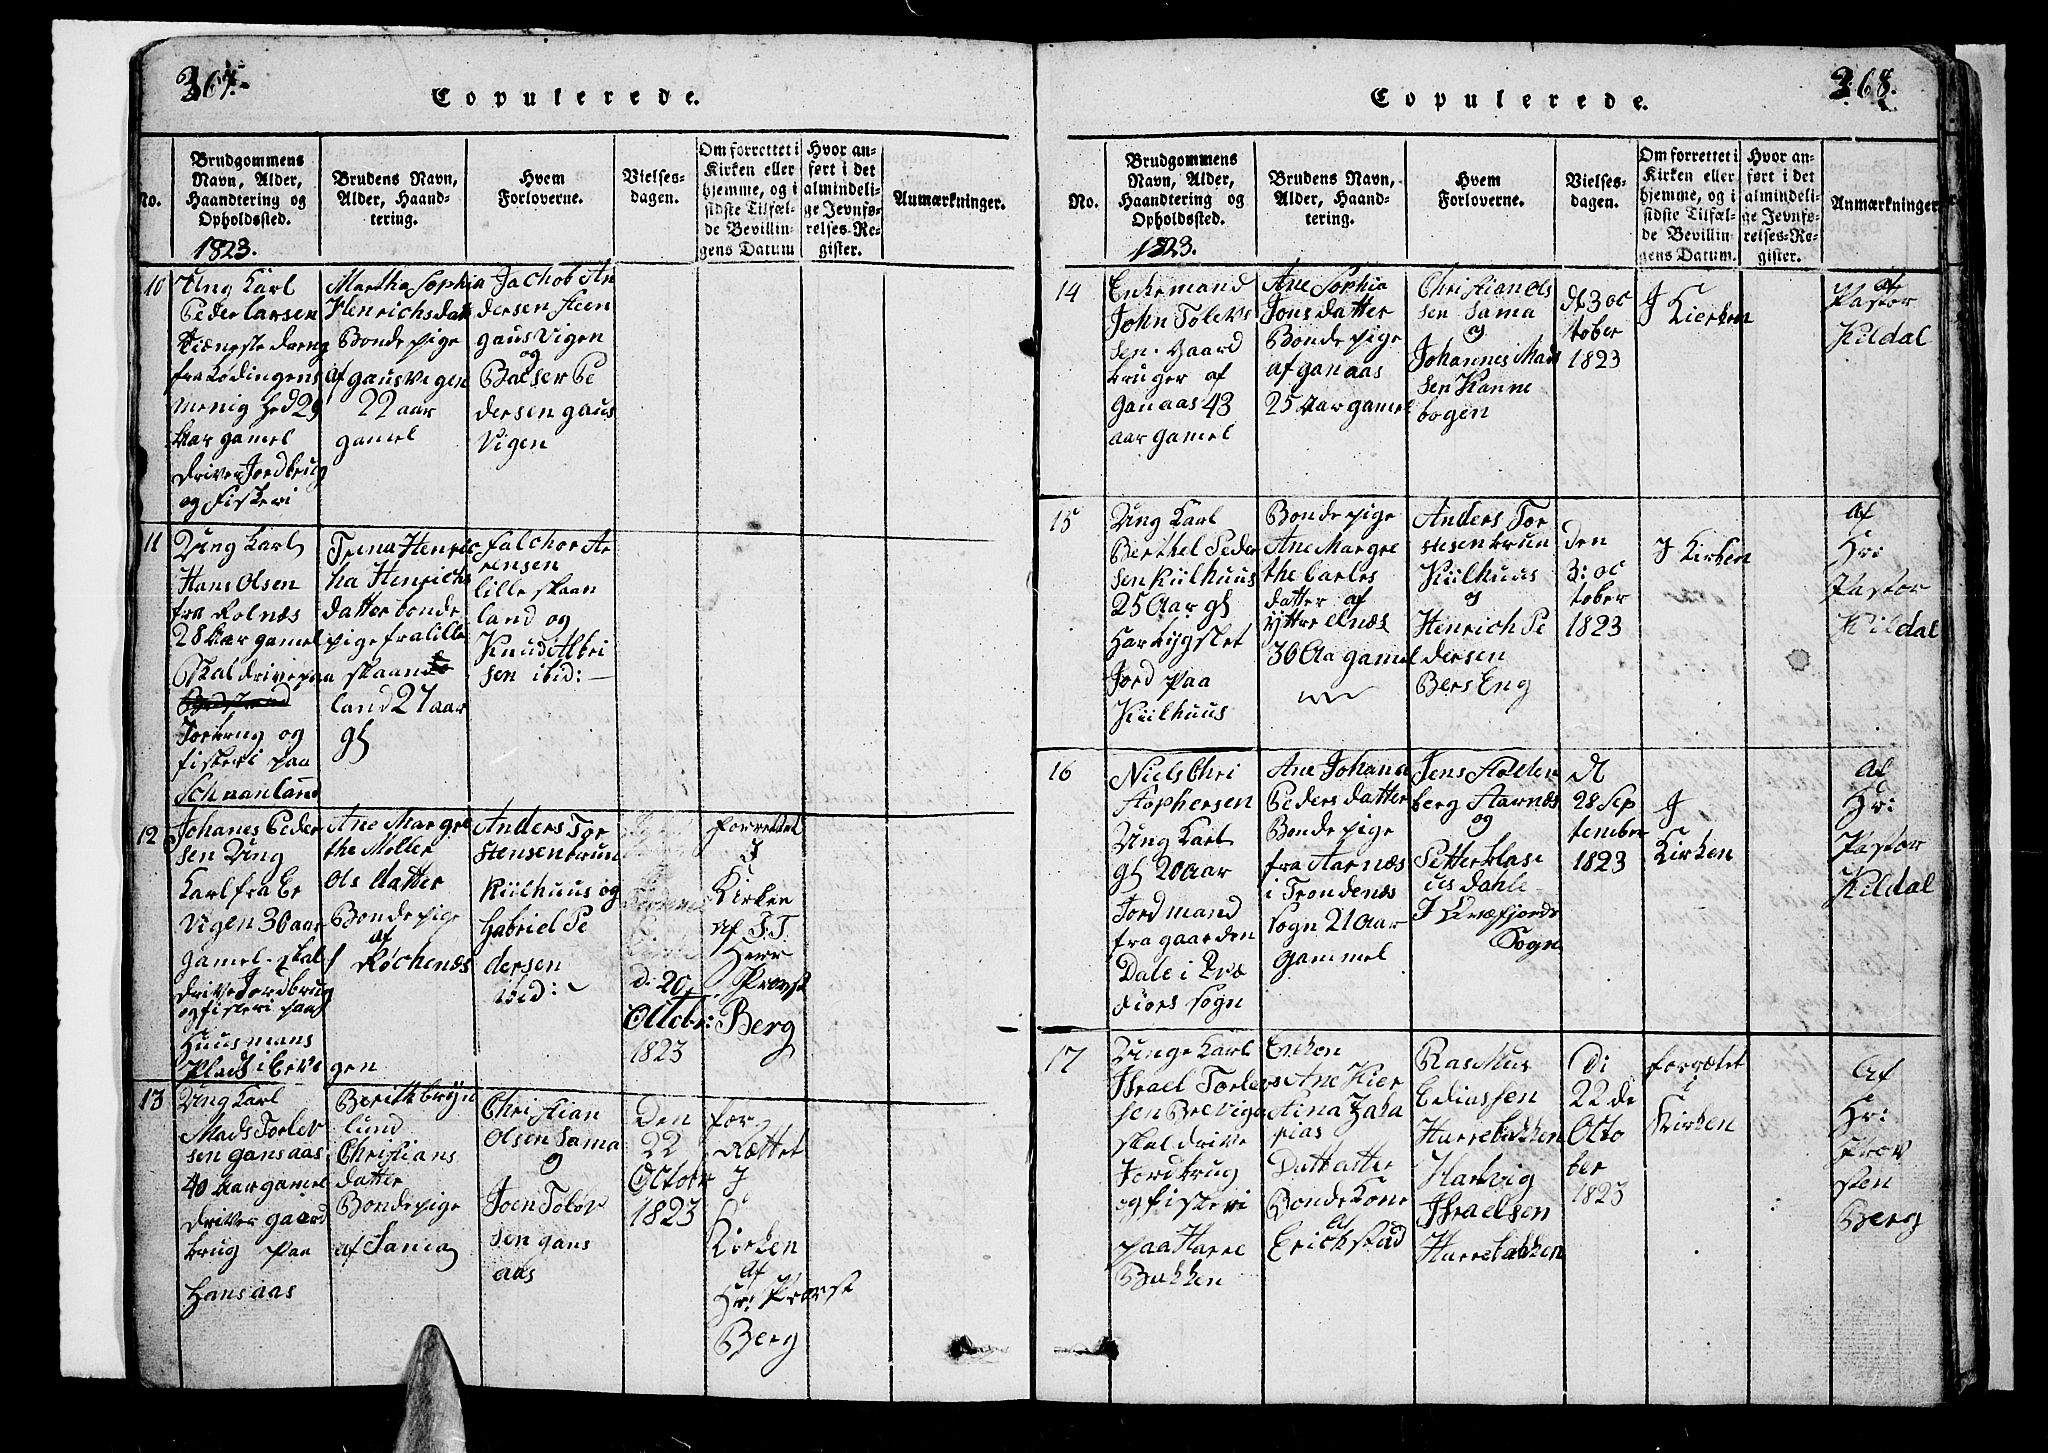 367.
Copulerede.
No.
Brudgommens
Navn, Alder,
Haandtering og
Opholdssted.
1823.
Brudens Navn,
Alder, Haand-
tering.
Hvem
Forloverne.
Vielses-
dagen.
Om forrettet i
Kirken eller
hjemme, og i
sidste Tilfæl-
de Bevillin-
gens Datum
Hvor an-
ført i det
almindeli-
ge Jevnfø-
relses-Re-
gister.
Anmærkninger.
10
Ung Karl
Peder Larsen
tieneste dreng
fra Lødingens
menig hed 29
Aar gamel
driver Jordbrug
og Fiskeri
Martha Sophia
Henrichsdatt
Bonde pige
af gausvigen
22 aar
gamel
Jachob An
dersen Steen
gausvigen
og
Balser Pe
dersen gaus
vigen
11
Ung Karl
Hans Olsen
fra Rolnæs
28 Aar gamel
Skal drive paa
Jorbrug og
fiskeri paa
Schaanland
Trina Henric
ha Henrichs
datter bonde
pige fra lille
skaan
land 27 aar
gl
Falchor Ar
rensen
lille skaan
land og
Knud Albri
sen ibid:
12
Johanes Peder
sen Ung
Karl fra Er
vigen 30 aar
gamel. skal
drive Jordbrug
og fiskeri paa
Huusmans
Plads i Ervi gen
Ane Margre
the Moller
Ols datter
Bonde pige
af
Røchenæs
Anders Tor
stensen bruun
Kiilhuus og
Gabriel Pe
dersen
ibid:
d: 20
Octobr:
1823
forrettet
J
Kirken
af S.T.
Herr
Provst
Berg
13
Ung Karl
Mads Torlev
sen gansaas
40 Aar gamel
driver gaard
brug paa
Hansaas
Berith bryn
lund
Christians
datter
Bonde pige
af Sama
Christian
Olsen Sama
og
Joen Tolov
sen gans
aas
Den
22
Octobr
1823
for
Rættet
J
Kirken
af
Hr: Provst
Berg
368.
Copulerede.
No.
Brudgommens
Navn, Alder,
Haandtering og
Opholdssted.
1823.
Brudens Navn,
Alder, Haand-
tering.
Hvem
Forloverne.
Vielses-
dagen.
Om forrettet i
Kirken eller
hjemme, og i
sidste Tilfæl-
de Bevillin-
gens Datum.
Hvor an-
ført i det
almindeli-
ge Jevnfø-
relses-Re-
gister.
Anmærkninger
14
Enkemand
John Tolevs
sen. Gaard
bruger af
Ganaas 43
aar gamel
Ane Sophia
Jonsdatter
Bonde pige
af ganaas
25 Aar gamel
Christian Ols
sen Sama
og
Johannes Mad
sen Kanne
bogen
d 3 oc
tober
1823
J
Kierken
af
Pastor
Kildal
15
Ung Karl
Berthel Peder
sen Kiilhuus
25 Aar gl
Har bygslet
Jord paa
Kiilhuus
Bonde pige
Ane Margre
the Carls
datter af
yttre elnæs
30 Aa gamel
Anders Tor
stesen bruun
Kiilhuus
og
Henrich Pe
dersen
Bers Eng
den
3: oc
tober
1823
J Kirken
af
Hr:
Pastor
Kildal
16
Niels Chri
stophersen
Ung Karl
gl 20 aar
Jordmand
fra gaarden
Dale i Qvæ
fiors sogn
Ane Johana
Peders datter
Bonde pige
fra Aarnæs
i Trondenæs
sogn 21 Aar
gammel
Jens Holden
berg Aarnæs
og
Petter klasi
us dahle
J Kvæfjords
Sogn
d
28 Sep
tember
1823
J
Kirken
af
Hr:
Pastor
Kildal
17
Unge Karl
Israel Torlevs
sen Breviga
skal drive
Jordbrug
og fiskeri
paa Harre
Bakken
Enken
Ane Kier
stina Zaka
rias
Dattatter
Bonde Kone
af
Erickstad
Rasmus
Eliassen
Harrebakken
Hartvig
Israelsen
Harrebakken
Di
22 de
Octo
ber
1823
forrættet
i
Kirken
Af
Hr:
Prov
sten
Berg